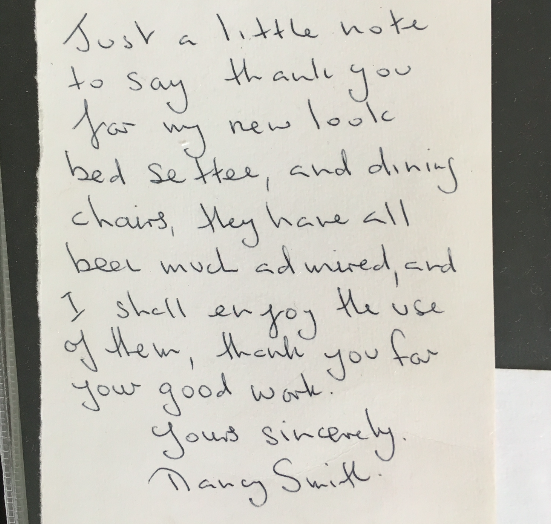 Just a little note
to say thank you
for my new look
bed settee, and dining
chairs, they have all
been much admired, and
I shall enjoy the use
of them, thank you for
your good work.
Yours sincerely.
Nancy Smith.